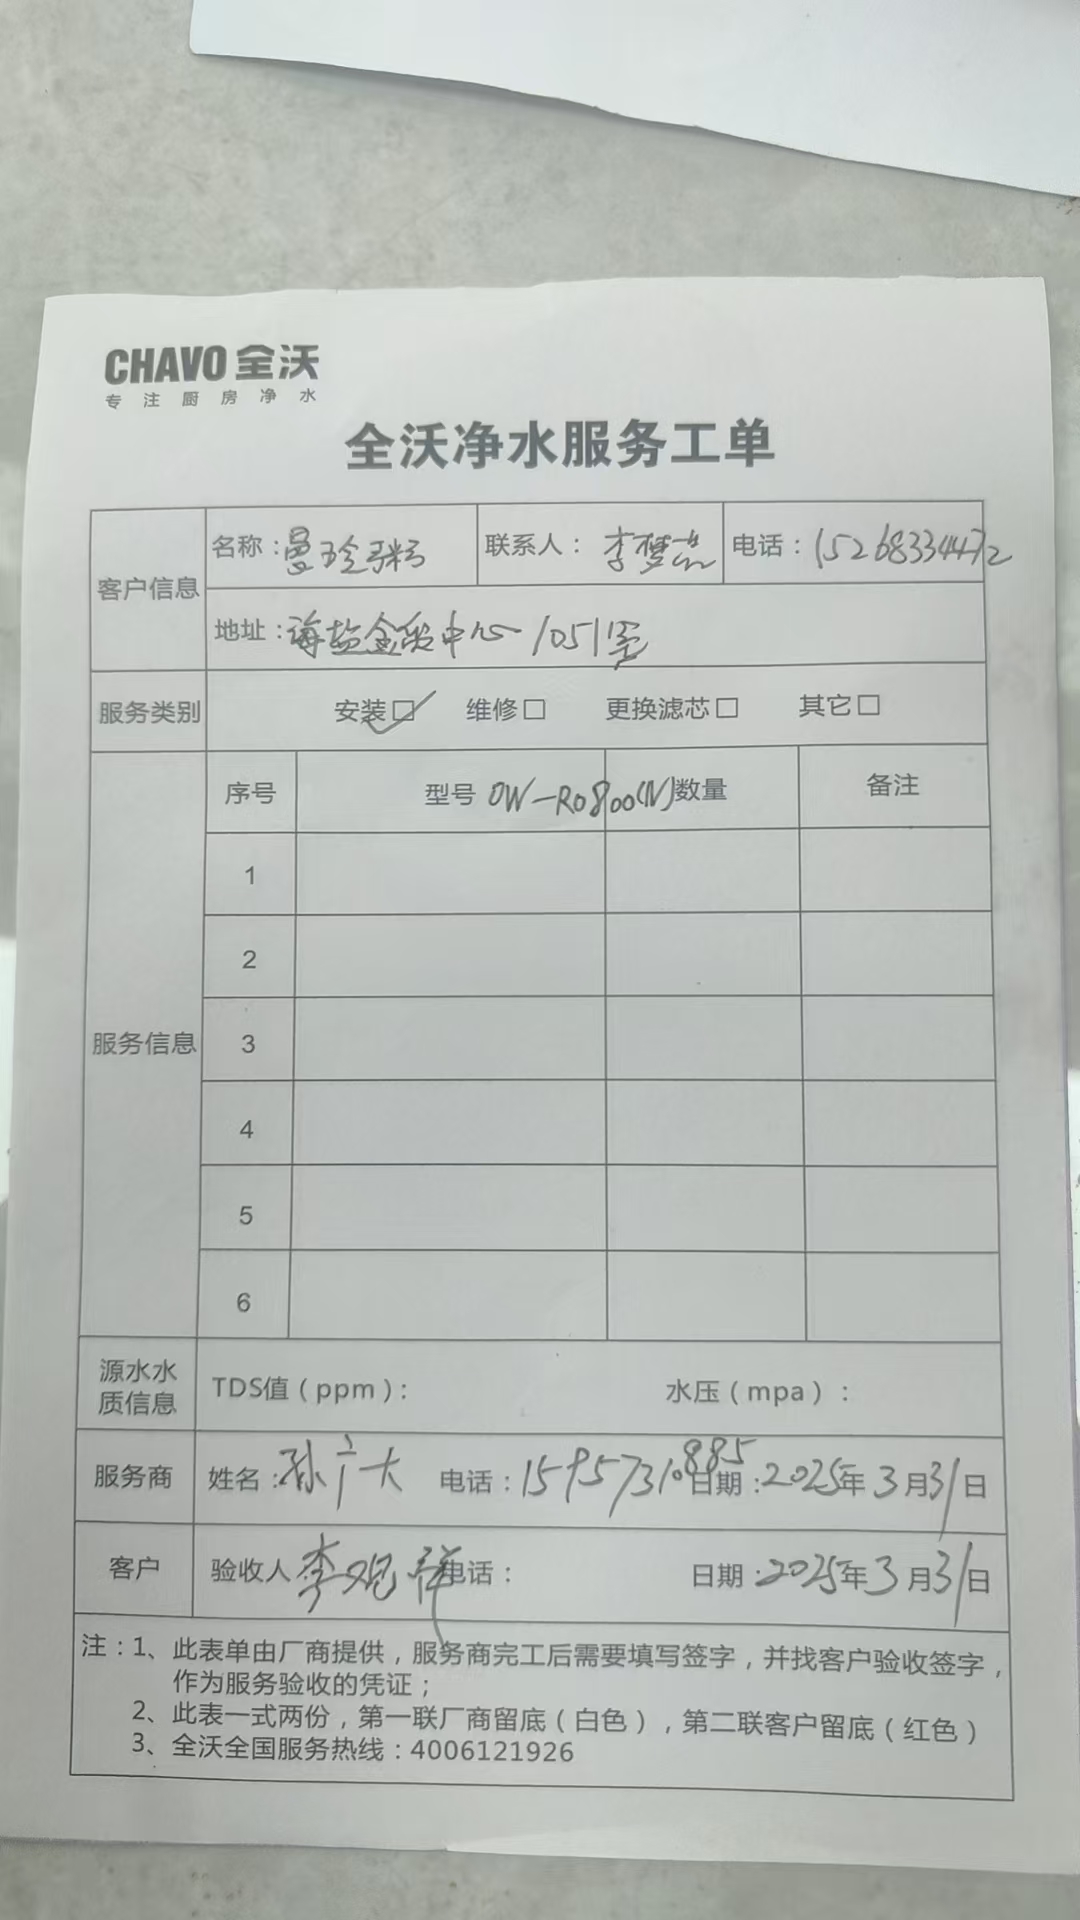 CHAVO 全沃
专注厨房净水
全沃净水服务工单
客户信息
名称：曼玲粥 联系人：李梦杰 电话：15268334472
地址：海盐金融中心1051室
服务类别 安装☑ 维修□ 更换滤芯□ 其它□
服务信息
序号 型号 OW-RO800(N) 数量 备注
1
2
3
4
5
6
源水水质信息 TDS值（ppm）： 水压（mpa）：
服务商 姓名：孙广大 电话：15957310885 日期：2025年3月31日
客户 验收人 李观祥 电话： 日期：2025年3月31日
注：1、此表单由厂商提供，服务商完工后需要填写签字，并找客户验收签字，
作为服务验收的凭证；
2、此表一式两份，第一联厂商留底（白色），第二联客户留底（红色）
3、全沃全国服务热线：4006121926